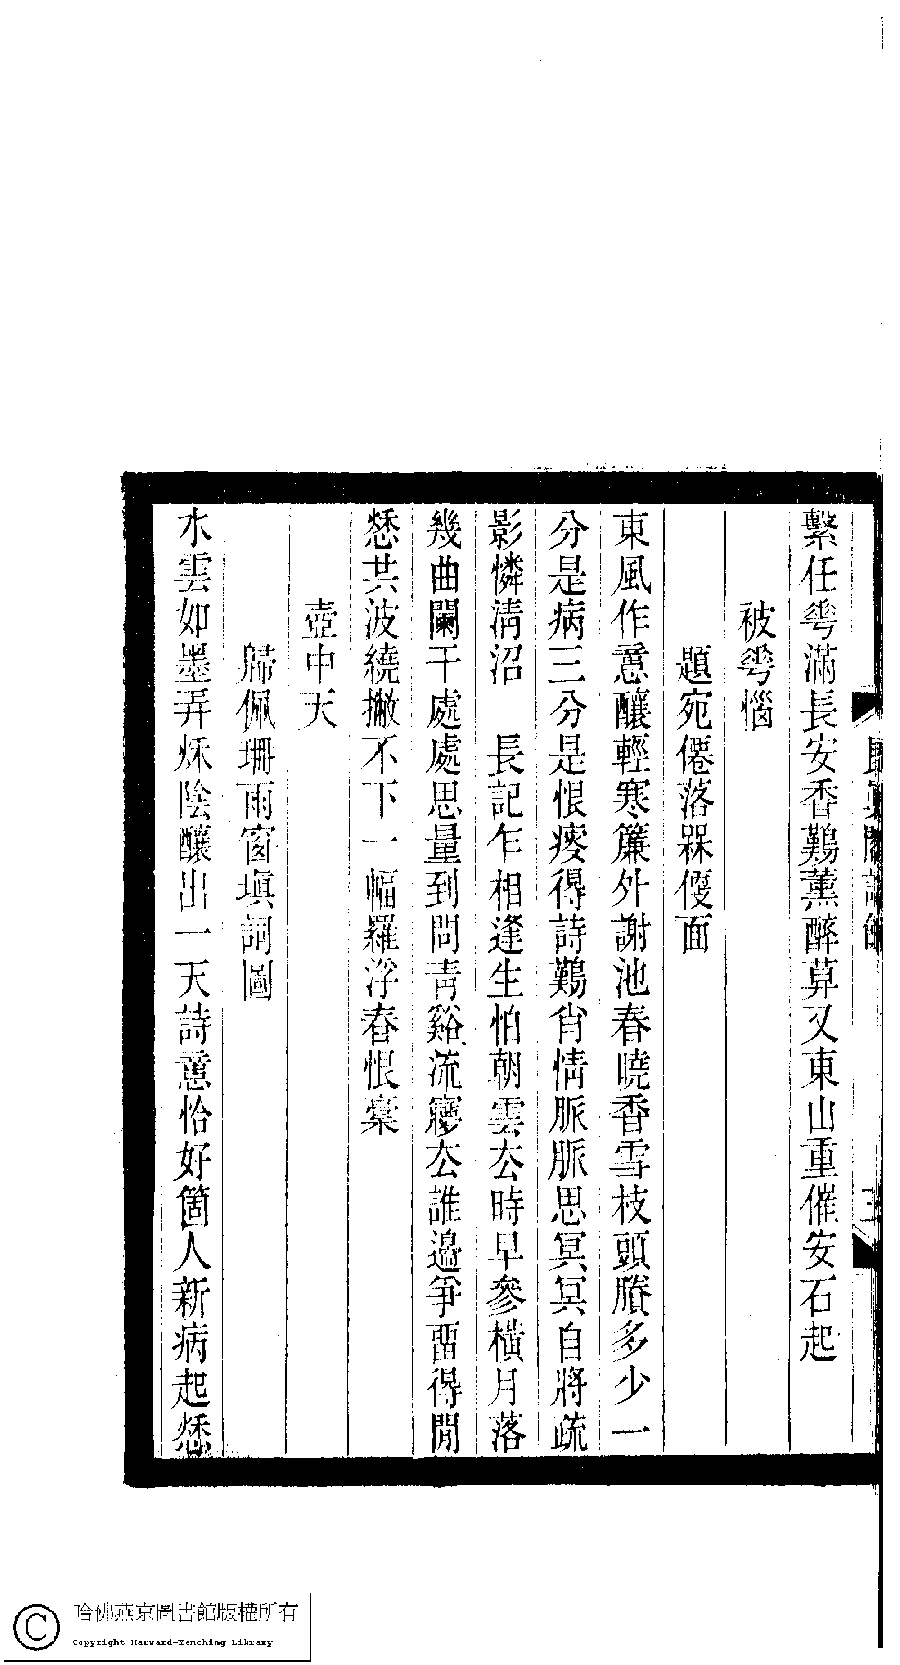 繫任花滿長安香難薰醉算又東山重催安石起
被花惱
題宛僊落槑便面
東風作意釀輕寒簾外謝池春曉香雪枝頭賸多少一
分是病三分是恨瘦得詩難肖情脈脈思冥冥自將疏
影憐淸沼　長記乍相逢生怕朝雲厺時早參橫月落
幾曲闌干處處思量到問靑谿流寥厺誰邉爭畱得閒
愁共波繞撇不下一幅羅浮春恨稾
壺中天
歸佩珊雨窗塡詞圖
水雲如墨弄秌陰釀出一天詩意恰好箇人新病起愁
哈佛燕京圖書館版權所有
Copyright Harvard-Yenching Library